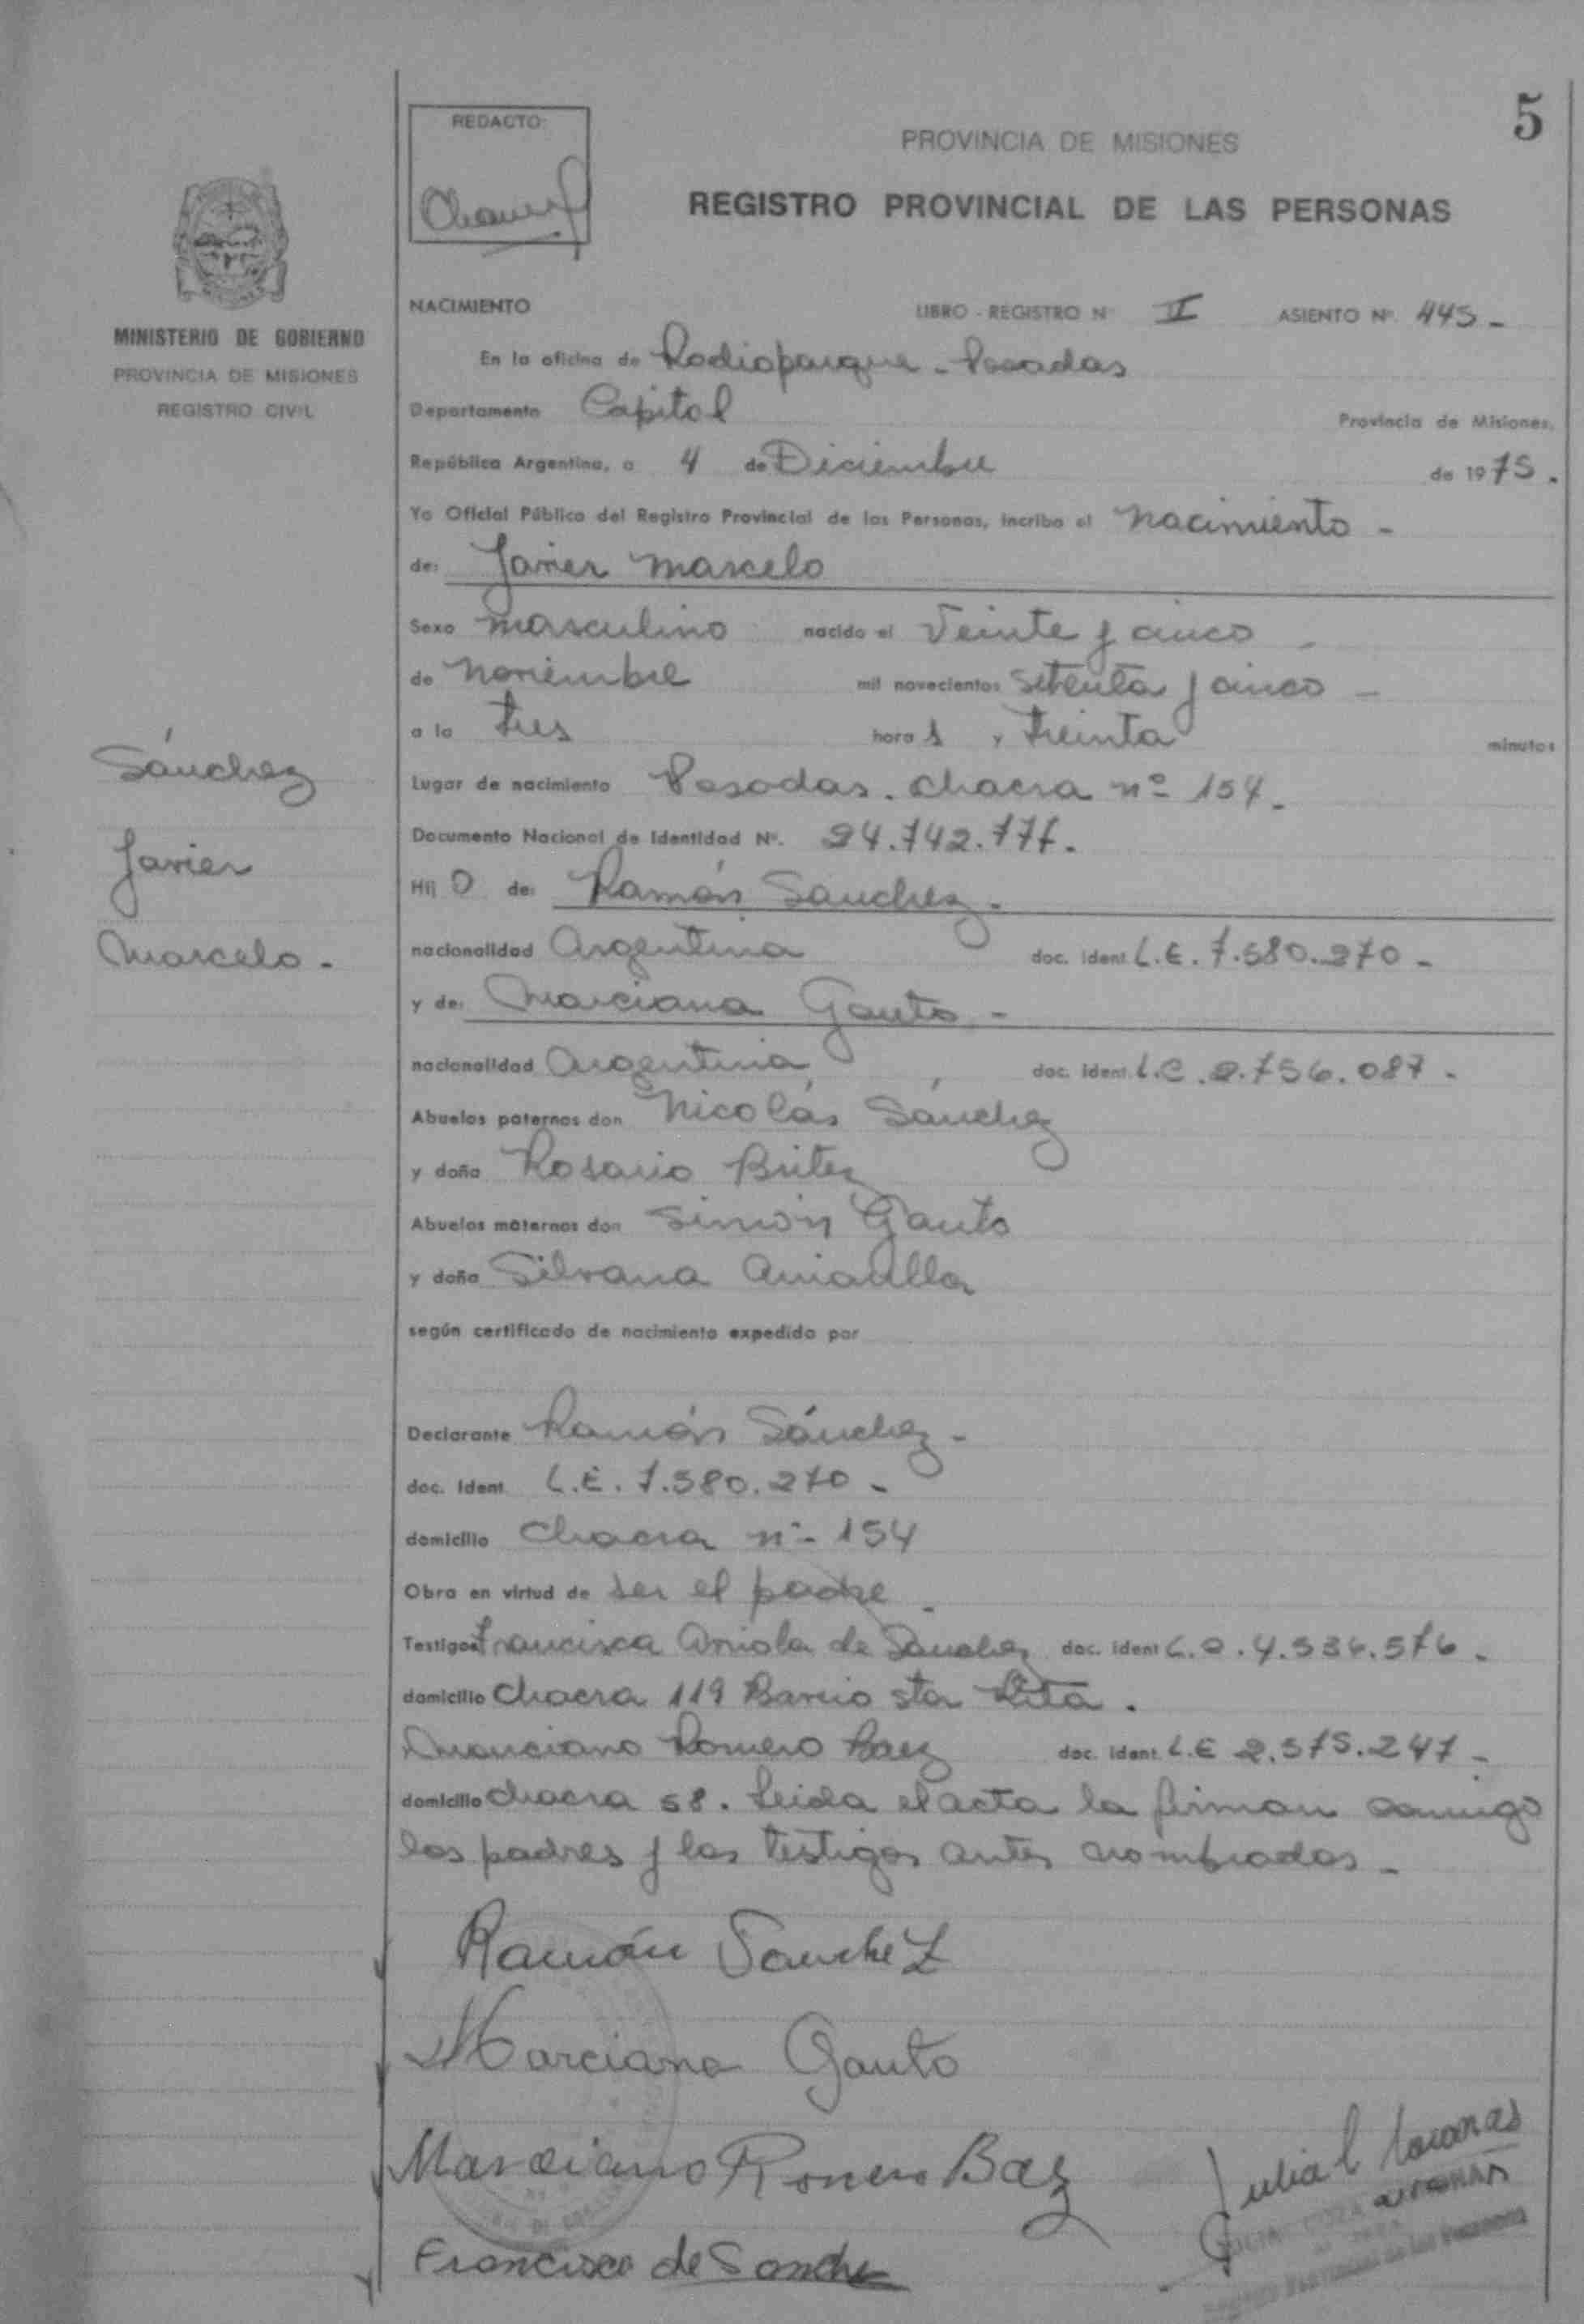 5
REDACTO:
PROVINCIA DE MISIONES
REGISTRO PROVINCIAL DE LAS PERSONAS
MINISTERIO DE GOBIERNO
PROVINCIA DE MISIONES
REGISTRO CIVIL
NACIMIENTO LIBRO - REGISTRO Nº II ASIENTO Nº. 445 -
En la oficina de Radioparque - Posadas
Departamento Capital Provincia de Misiones,
República Argentina, a 4 de Diciembre de 1975.
Yo Oficial Público del Registro Provincial de las Personas, incribo el nacimiento -
de: Javier Marcelo
Sexo masculino nacido el Veinte y cinco -
de noviembre mil novecientos setenta y cinco -
a la tres hora s y treinta minutos
Sánchez
Javier
Marcelo -
Lugar de nacimiento Posadas. chacra nº 154.
Documento Nacional de Identidad Nº. 24.742.777.
Hij o de: Ramón Sánchez -
nacionalidad Argentina doc. ident. L.E. 7.580.270 -
y de: Marciana Gauto -
nacionalidad Argentina doc. ident. L.C. 2.756.087 -
Abuelos paternos don Nicolás Sánchez
y doña Rosario Britez
Abuelos maternos don Simón Gauto
y doña Silvana
según certificado de nacimiento expedido por
Declarante Ramón Sánchez -
doc. Ident. L.E. 7.580.270 -
domicilio Chacra nº 154
Obra en virtud de ser el padre -
Testigos Francisca de Sanchez doc. ident L.C. 4.536.576 -
domicilio Chacra 119 Barrio sta Rita.
Marciano Romero Baez doc. ident. L.E 2.575.247 -
domicilio chacra 58. Leida el acta la firman conmigo
los padres y los testigos antes nombrados -
Ramón Sanchez
Marciana Gauto
Marciano Romero Baez
Francisca de Sanche
Julia C